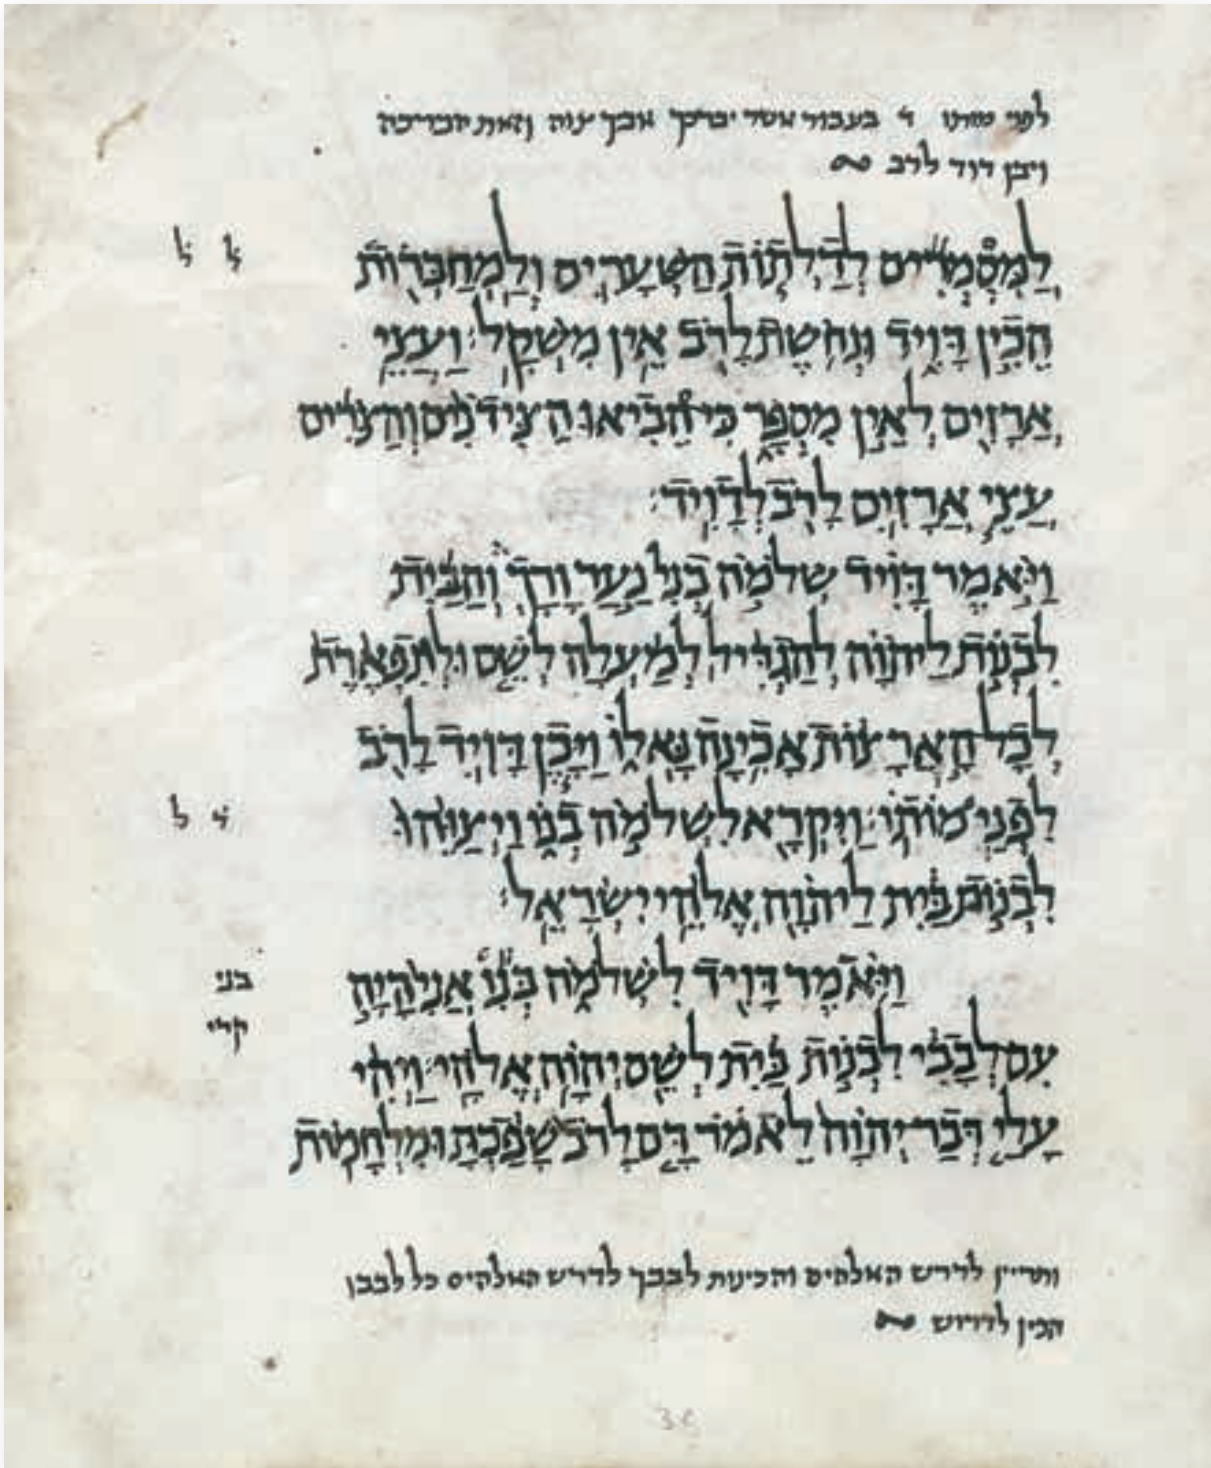 לפני מותו ד בעבור אשר יברכך אביך צוה וזאת הברכה
ויכן דוד לרב
לַמִּסְמְרִים לְדַלְתוֹת הַשְּׁעָרִים וְלַמְחַבְּרוֹת
ל ל
הֵכִין דָּוִיד וּנְחֹשֶׁת לָרֹב אֵין מִשְׁקָל׃ וַעֲצֵי
אֲרָזִים לְאֵין מִסְפָּר כִּי הֵבִיאוּ הַצִּידֹנִים וְהַצֹּרִים
עֲצֵי אֲרָזִים לָרֹב לְדָוִיד׃
וַיֹּאמֶר דָּוִיד שְׁלֹמֹה בְנִי נַעַר וָרָךְ וְהַבַּיִת
לִבְנוֹת לַיהוָה לְהַגְדִּיל לְמַעְלָה לְשֵׁם וּלְתִפְאֶרֶת
לְכָל הָאֲרָצוֹת אָכִינָה נָּא לוֹ וַיָּכֶן דָּוִיד לָרֹב
לִפְנֵי מוֹתוֹ׃ וַיִּקְרָא לִשְׁלֹמֹה בְנוֹ וַיְצַוֵּהוּ
ד ל
לִבְנוֹת בַּיִת לַיהוָה אֱלֹהֵי יִשְׂרָאֵל׃
וַיֹּאמֶר דָּוִיד לִשְׁלֹמֹה בְּנִוֹ אֲנִי הָיָה
בני
קרי
עִם לְבָבִי לִבְנוֹת בַּיִת לְשֵׁם יְהוָה אֱלֹהָי׃ וַיְהִי
עָלַי דְּבַר יְהוָה לֵאמֹר דָּם לָרֹב שָׁפַכְתָּ וּמִלְחָמוֹת
לדרש האלהים והכינות לבבך לדרש האלהים כל לבבו
הכין לדרוש